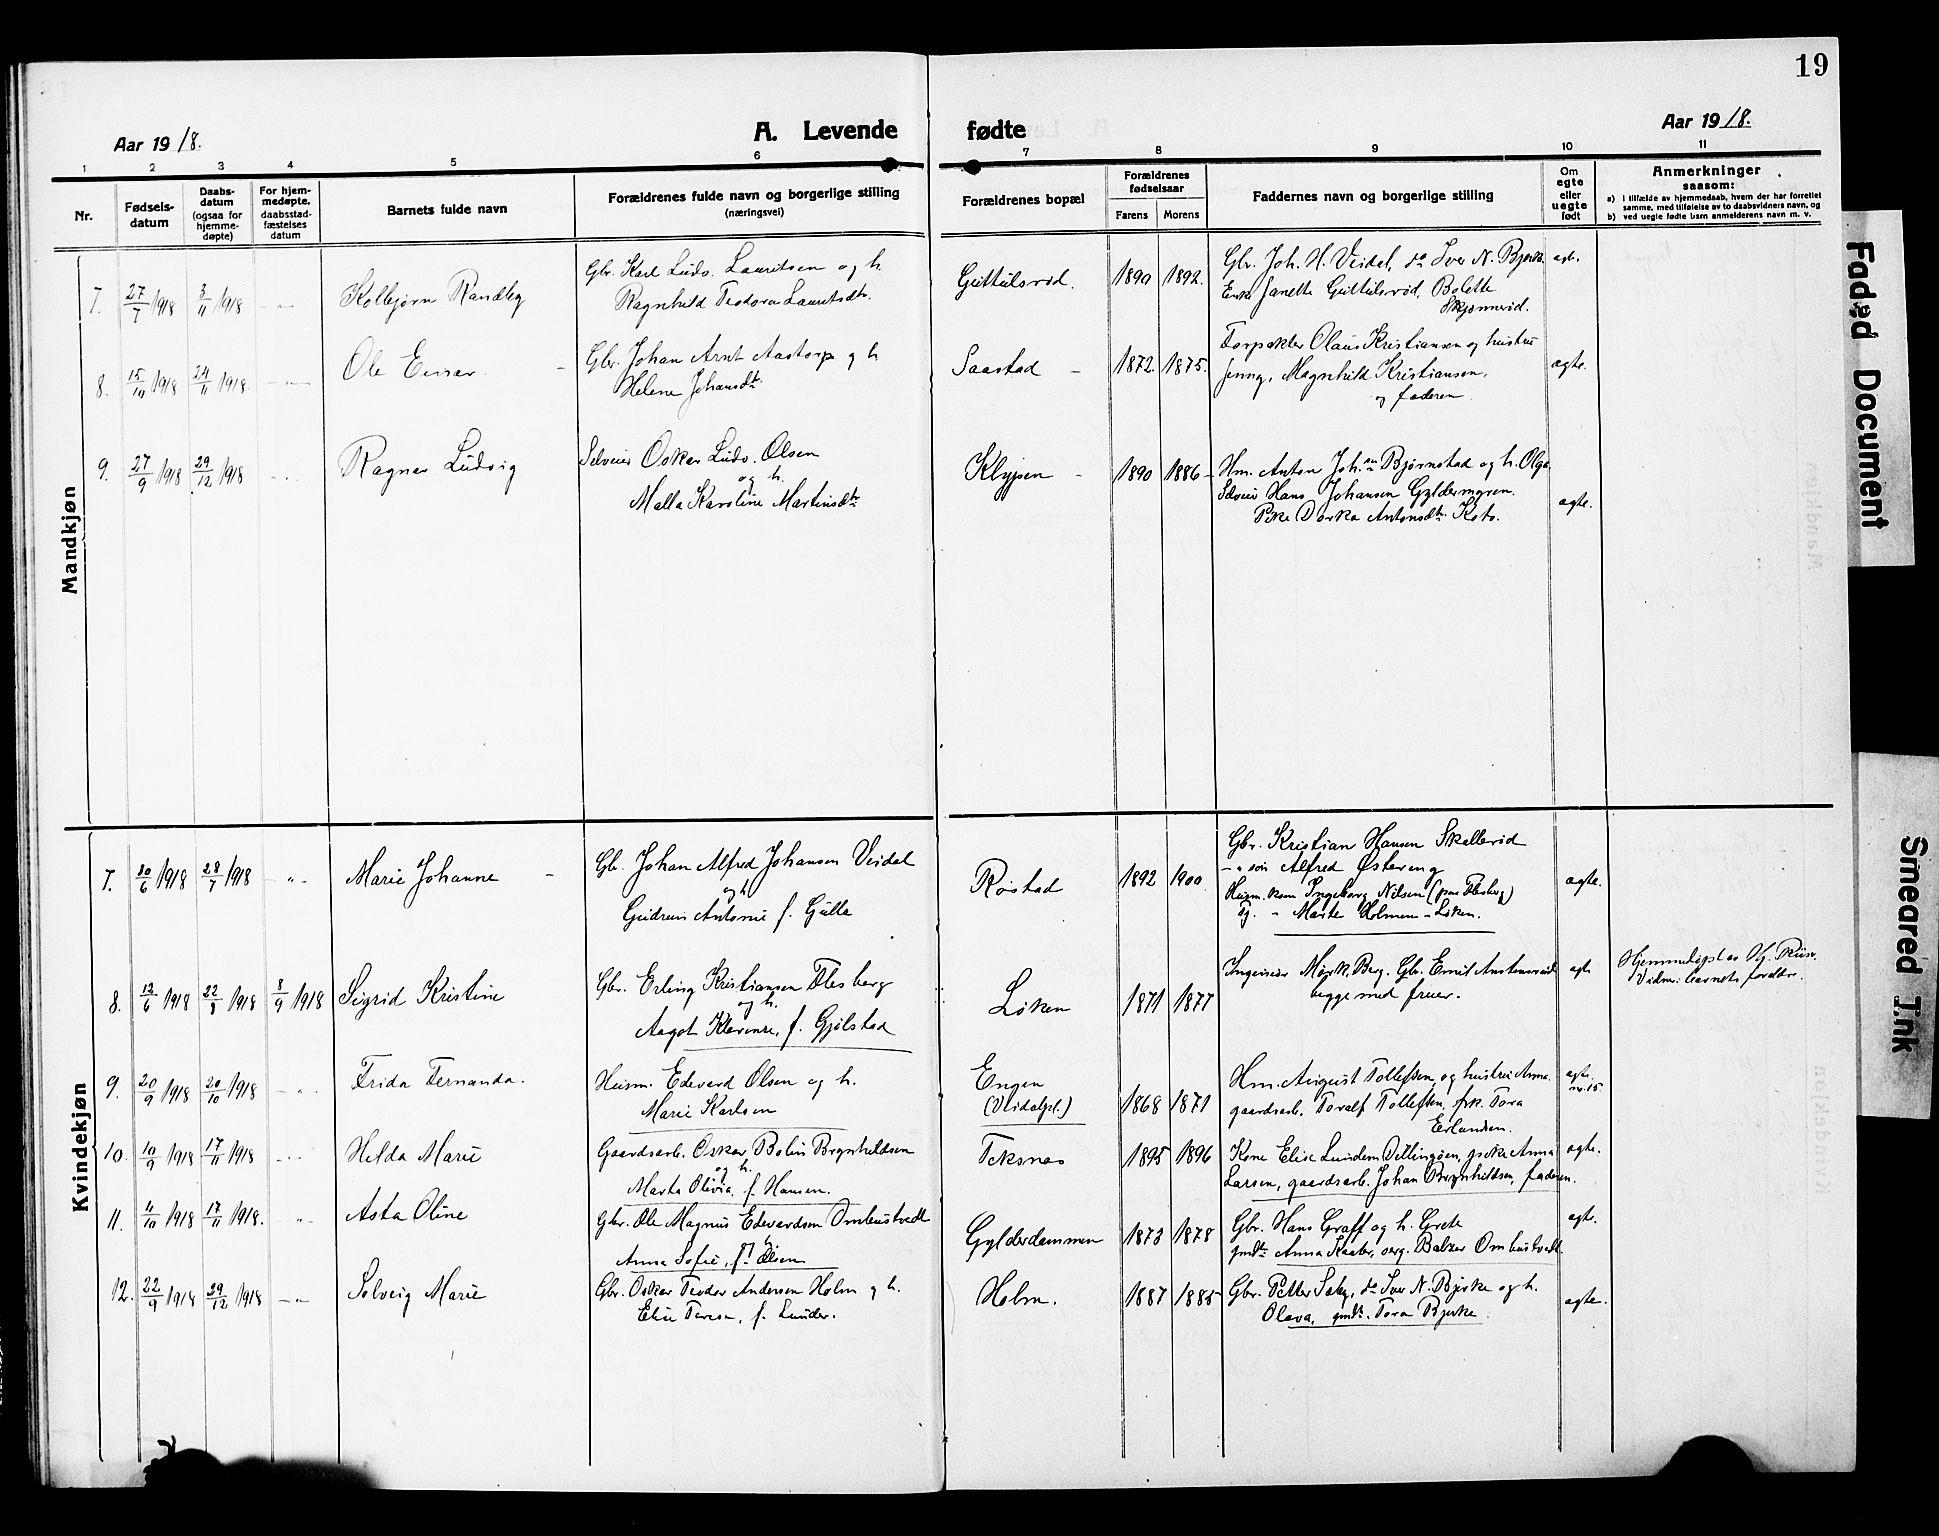 19
Aar 1918.
A. Levende fødte
Aar 1918.
1 2 3 4 5 6 7 8 9 10 11
Nr.
Fødsels-
datum
Daabs-
datum
(ogsaa for
hjemme-
døpte)
For hjem-
medøpte,
daabsstad-
fæstelses
datum
Barnets fulde navn
Forældrenes fulde navn og borgerlige stilling
(næringsvei)
Forældrenes bopæl
Forældrenes
fødselsaar
Farens Morens
Faddernes navn og borgerlige stilling
Om
egte
eller
uegte
født
Anmerkninger
saasom:
a) i tilfælde av hjemmedaab, hvem der har forrettet
samme, med tilføielse av to daabsvidners navn, og
b) ved uegte fødte barn anmelderens navn m. v.
Mandkjøn
7. 27/7 1918 3/11 1918 - „ - Kolbjørn Randleg
Gbr. Karl Ludv. Lauritsen og h.
Ragnhild Teodora Lauritsdtr.
Guttulsrød. 1890 1892.
Gbr. Joh. H. Veidal, do Iver N. Bjerke.
Enke Janette Guttulsrød, Bolette
Skjønnerød.
egte.
8. 15/10 1918 24/11 1918 - „ - Ole Einar. -
Gbr. Johan Arnt Aastorp og h
Helene Johansdtr.
Saastad - 1872. 1875.
Forpakter Olaus Kristiansen og hustru
Jenny, Magnhild Kristiansen,
og faderen.
egte.
9. 27/9 1918 29/12 1918 - „ - Ragnar Ludvig
Selveier Oskar Ludv. Olsen
og h.
Malla Karoline Martinsdtr
Klypen - 1890 1886 -
Hm. Anton Joh.sen Bjørnstad og h. Olga.
Selveier Hans Johansen Gyldermyren.
Pike Dorka Antonsdtr. Kato.
egte.
Kvindekjøn
7. 30/6 1918 28/7 1918 - „ - Marie Johanne -
Gbr. Johan Alfred Johansen Veidal
og h
Gudrun Antonie f. Gulla
Røstad 1892 1900.
Gbr. Kristian Hansen Skallerød
- „ søn Alfred Østereng
Husm. kone Ingeborg Nilsen (paa Flesberg)
Pg. „ Marte Holmen - Løken.
egte.
8. 12/6 1918 22/8 1918 8/9 1918 Sigrid Kristine
Gbr. Erling Kristiansen Flesberg
og h.
Aagot Klarense, f. Gjølstad
Løken 1871 1877
Ingeniør Mørk, Berg. Gbr. Emil Austensrud
begge med fruer.
egte
Hjemmedøpt av Vg. Riis.
Vidner: barnets foreldre.
9. 20/9 1918 20/10 1918 - „ Frida Fernanda.
Husm. Edvard Olsen og h.
Marie Karlsen
Engen
(Veidalpl.) 1868 1871
Hm. August Tollefsen, og hustru Anna.
gaardsarb. Toralf Tollefsen, frk. Tora
Erlandsen.
egte.
nr. 15
10. 10/9 1918 17/11 1918 - „ - Helda Marie
Gaardsarb. Oskar Bolius Brynhildsen
og h.
Marta Olivia, f. Hansen.
Teksnes 1895 1896
Kone Elise Lundem Dillingøen, pike Anna
Larsen, gaardsarb. Johan Brynhildsen, faderen.
egte.
11. 4/10 1918 17/11 1918. - „ - Asta Oline
Gbr. Ole Magnus Edvardsen Ombustvedt
Anna Sofie, f. Olsen
Gylderdammen 1873 1878
Gbr. Hans Graff og h. Grete
gmdtr Anna Kaaber, serg. Balzer Ombustvedt.
egte.
12. 22/9 1918 29/12 1918 - „ - Solveig Marie
Gbr. Oskar Teodor Andersen Holm og h.
Elise Teresa, f. Lunder.
Holm. 1887 1885
Gbr. Petter Saby, do Iver N. Bjerke og h.
Olava, gmdtr. Tora Bjerke.
egte.
Faded Document
Smeared Ink